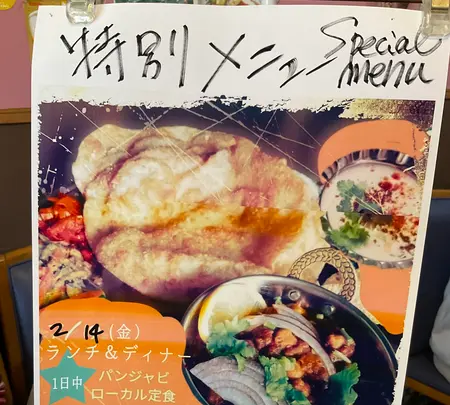 特別メニュー Special menu
2/14 (金)
ランチ&ディナー
1日中 パンジャビ
ローカル定食